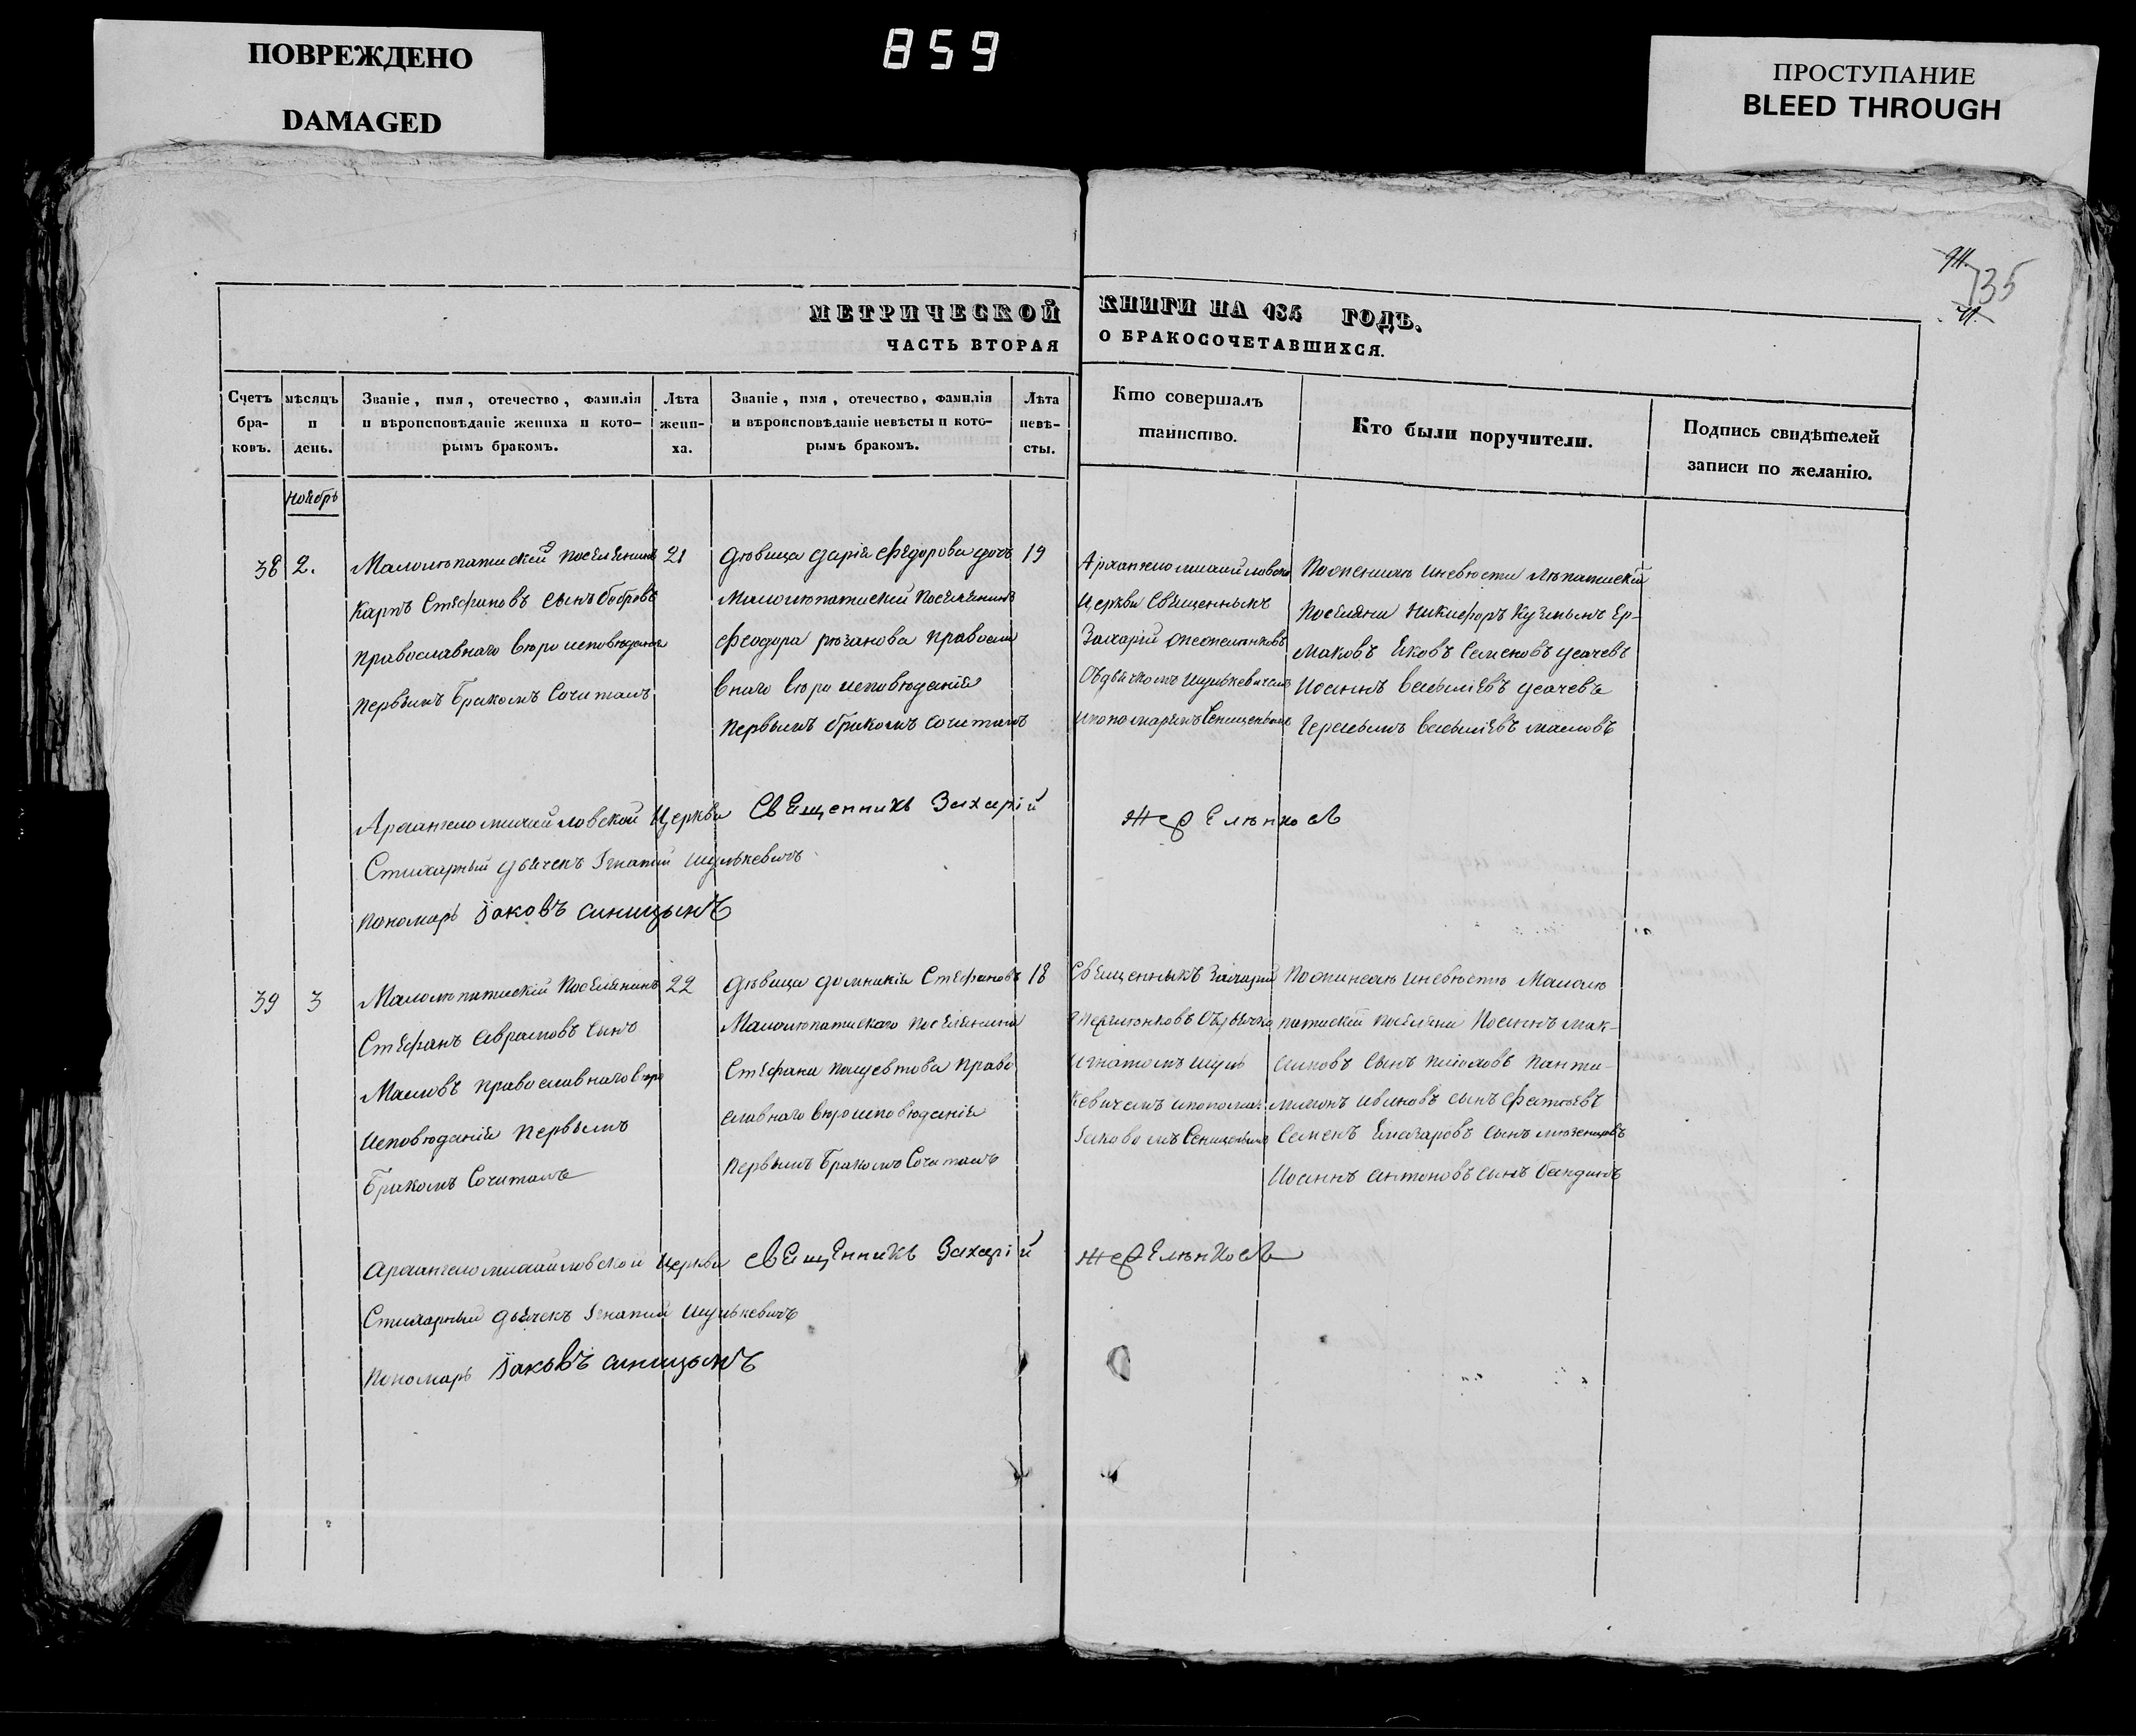 ПОВРЕЖДЕНО
DAMAGED
859
ПРОСТУПАНИЕ
BLEED THROUGH
735
МЕТРИЧЕСКОЙ КНИГИ НА 185 ГОДЪ.
ЧАСТЬ ВТОРАЯ О БРАКОСОЧЕТАВШИХСЯ.
Счетъ бра-ковъ.
мѣсяцъ и день.
Званіе, имя, отечество, фамилія
и вѣроисповѣданіе жениха и кото-
рымъ бракомъ.
Лѣта жени-ха.
Званіе, имя, отечество, фамилія
и вѣроисповѣданіе невѣсты и кото-
рымъ бракомъ.
Лѣта невѣ-сты.
Кто совершалъ
таинство.
Кто были поручители.
Подпись свидѣтелей
записи по желанію.
Ноябрь
38
2.
Малолѣпатиский поселянинъ
Карпъ Стефановъ сынъ Бобровъ
православнаго вѣро исповѣданія
первымъ бракомъ сочитанъ
21
Дѣвица Дарія Федорова дочь
Малолѣпатиский поселянинъ
Феодора Рѣзанова правосла
внаго вѣро исповѣданія
первымъ бракомъ сочитанъ
19
Церкви Священникъ
Захарій
По женихѣ и невѣсти
поселяни Никифоръ Кузминъ Ер-
маковъ Яковъ Семеновъ Усачевъ
Иоаннъ Васылієвъ Усачевъ
Васылієвъ Масловъ
Архангеломихайловской Церкви Священникъ Захарій
Стихарный дьячекъ Ігнатий Шулькевичъ
Пономарь Іаковъ Синицынъ
39
3
Малолѣпатиский поселянинъ
Стефанъ Аврамовъ сынъ
Масловъ православнаго вѣро
исповѣданія первымъ
бракомъ сочитанъ
22
Дѣвица Домникія Стефановъ
Малолѣпатискаго поселянина
Стефана право
славнаго вѣроисповѣданія
первымъ бракомъ сочитанъ
18
Священникъ Захарий
Игнатомъ Шуль
кевичемъ
Іаковомъ
и невѣстѣ Малолѣ
патиский поселяни Иоаннъ Мак-
симовъ сынъ Панти-
лимонъ Ивановъ сынъ
Семенъ сынъ
Иоаннъ Антоновъ сынъ
Архангеломихайловской Церкви Священникъ Захарій
Стихарный дьячекъ Ігнатий Шулькевичъ
Пономарь Іаковъ Синицынъ